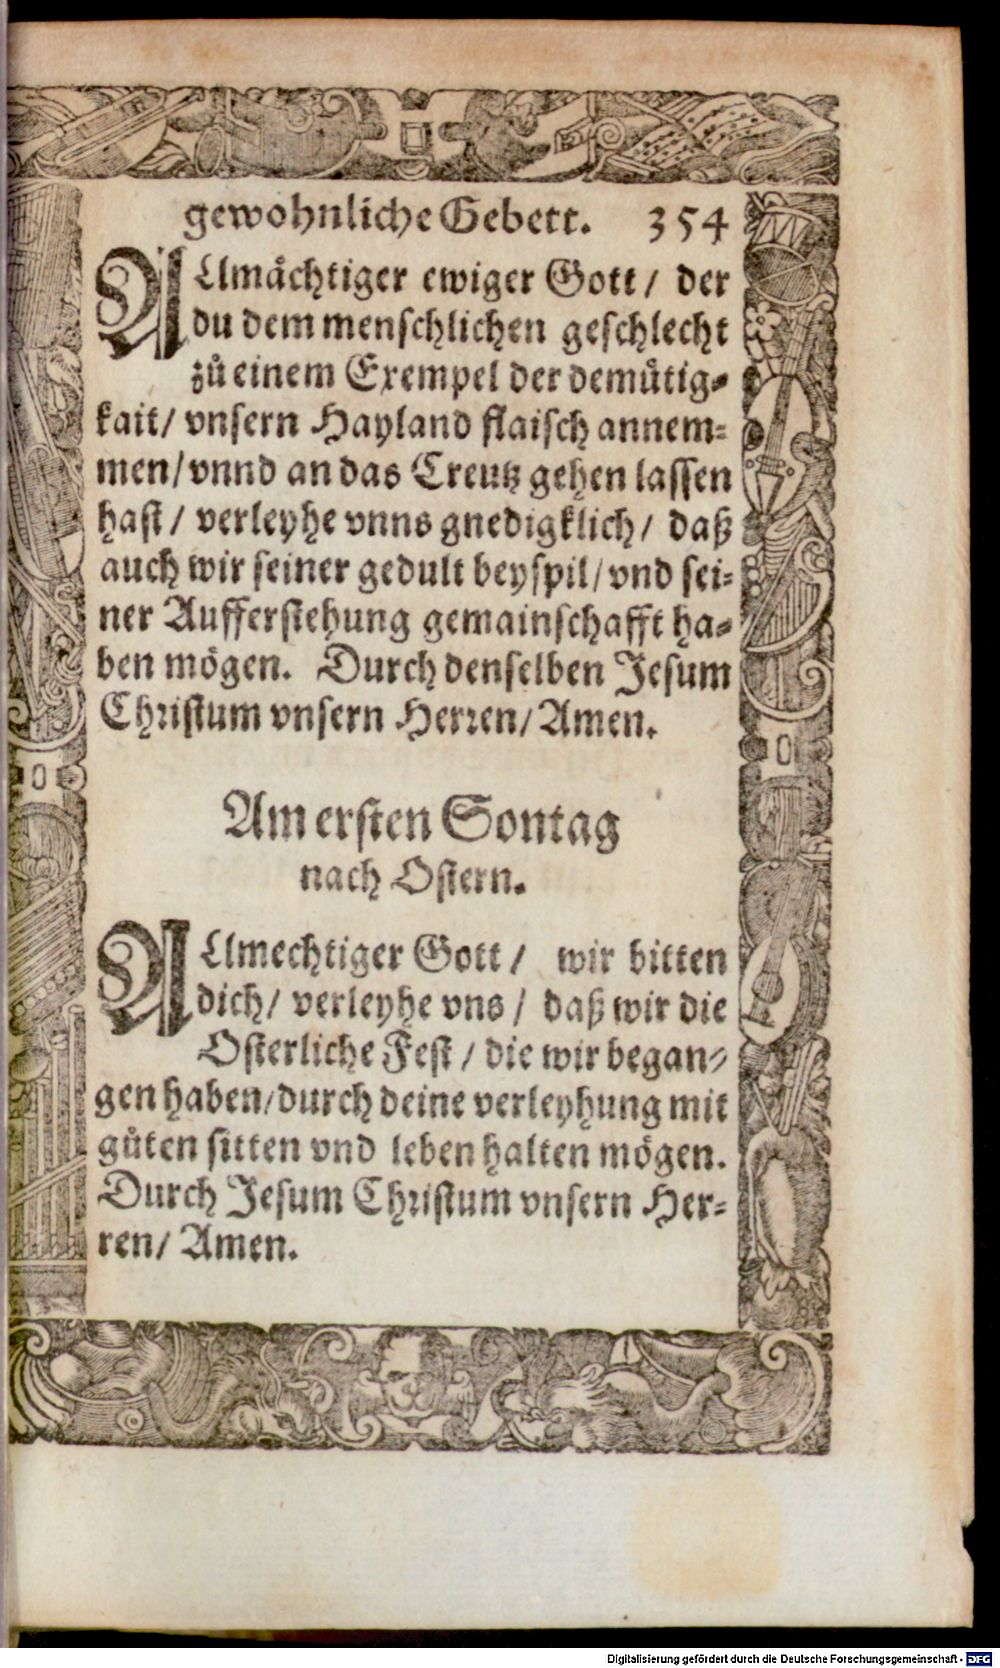 gewohnliche Gebett. 354
ALlmächtiger ewiger Gott / der
du dem menschlichen geschlecht
zů einem Exempel der demütig-
kait / vnsern Hayland flaisch annem-
men / vnnd an das Creutz gehen lassen
hast / verleyhe vnns gnedigklich / daß
auch wir seiner gedult beyspil / vnd sei-
ner Aufferstehung gemainschafft ha-
ben mögen. Durch denselben Jesum
Christum vnsern Herren / Amen.
Am ersten Sontag
nach Ostern.
ALlmechtiger Gott / wir bitten
dich / verleyhe vns / daß wir die
Osterliche Fest / die wir began-
gen haben / durch deine verleyhung mit
gůten sitten vnd leben halten mögen.
Durch Jesum Christum vnsern Her-
ren / Amen.
Digitalisierung gefördert durch die Deutsche Forschungsgemeinschaft - DFG